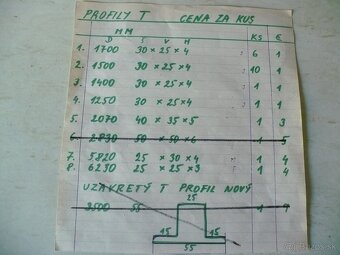 PROFILY T CENA ZA KUS
MM
D Š V H KS €
1. 1700 30 × 25 × 4 : 6 1
2. 1500 30 × 25 × 4 : 10 1
3. 1400 30 × 25 × 4 : 1 1
4. 1250 30 × 25 × 4 : 1 1
5. 2070 40 × 35 × 5 1 3
6. 2830 50 × 50 × 6 1 5
7. 5820 25 × 30 × 4 1 4
8. 6230 25 × 25 × 3 1 4
UZAVRETÝ T PROFIL NOVÝ
25
3500 55 1
15 15
55